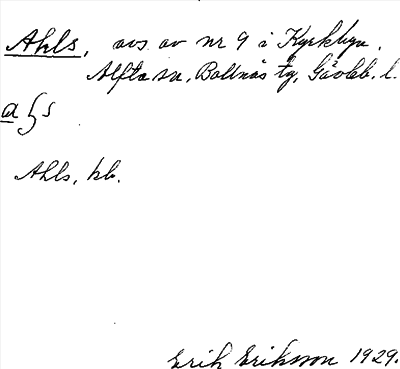 Ahls, avs av nr 9 i Kyrkbyn.
Alfta sn, Bollnäs tg, Gävleb. l.
Ahls, kb.
Erik Eriksson 1929.